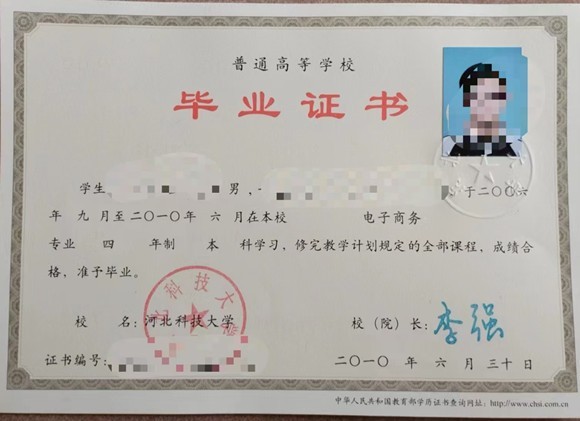 普通高等学校
毕业证书
学生 男， 于二〇〇六
年 九 月至二〇一〇年 六 月在本校 电子商务
专业 四 年制 本 科学习，修完教学计划规定的全部课程，成绩合
格，准予毕业。
校 名：河北科技大学 校（院）长：李强
证书编号： 二〇一〇 年 六 月 三十 日
中华人民共和国教育部学历证书查询网址：http://www.chsi.com.cn